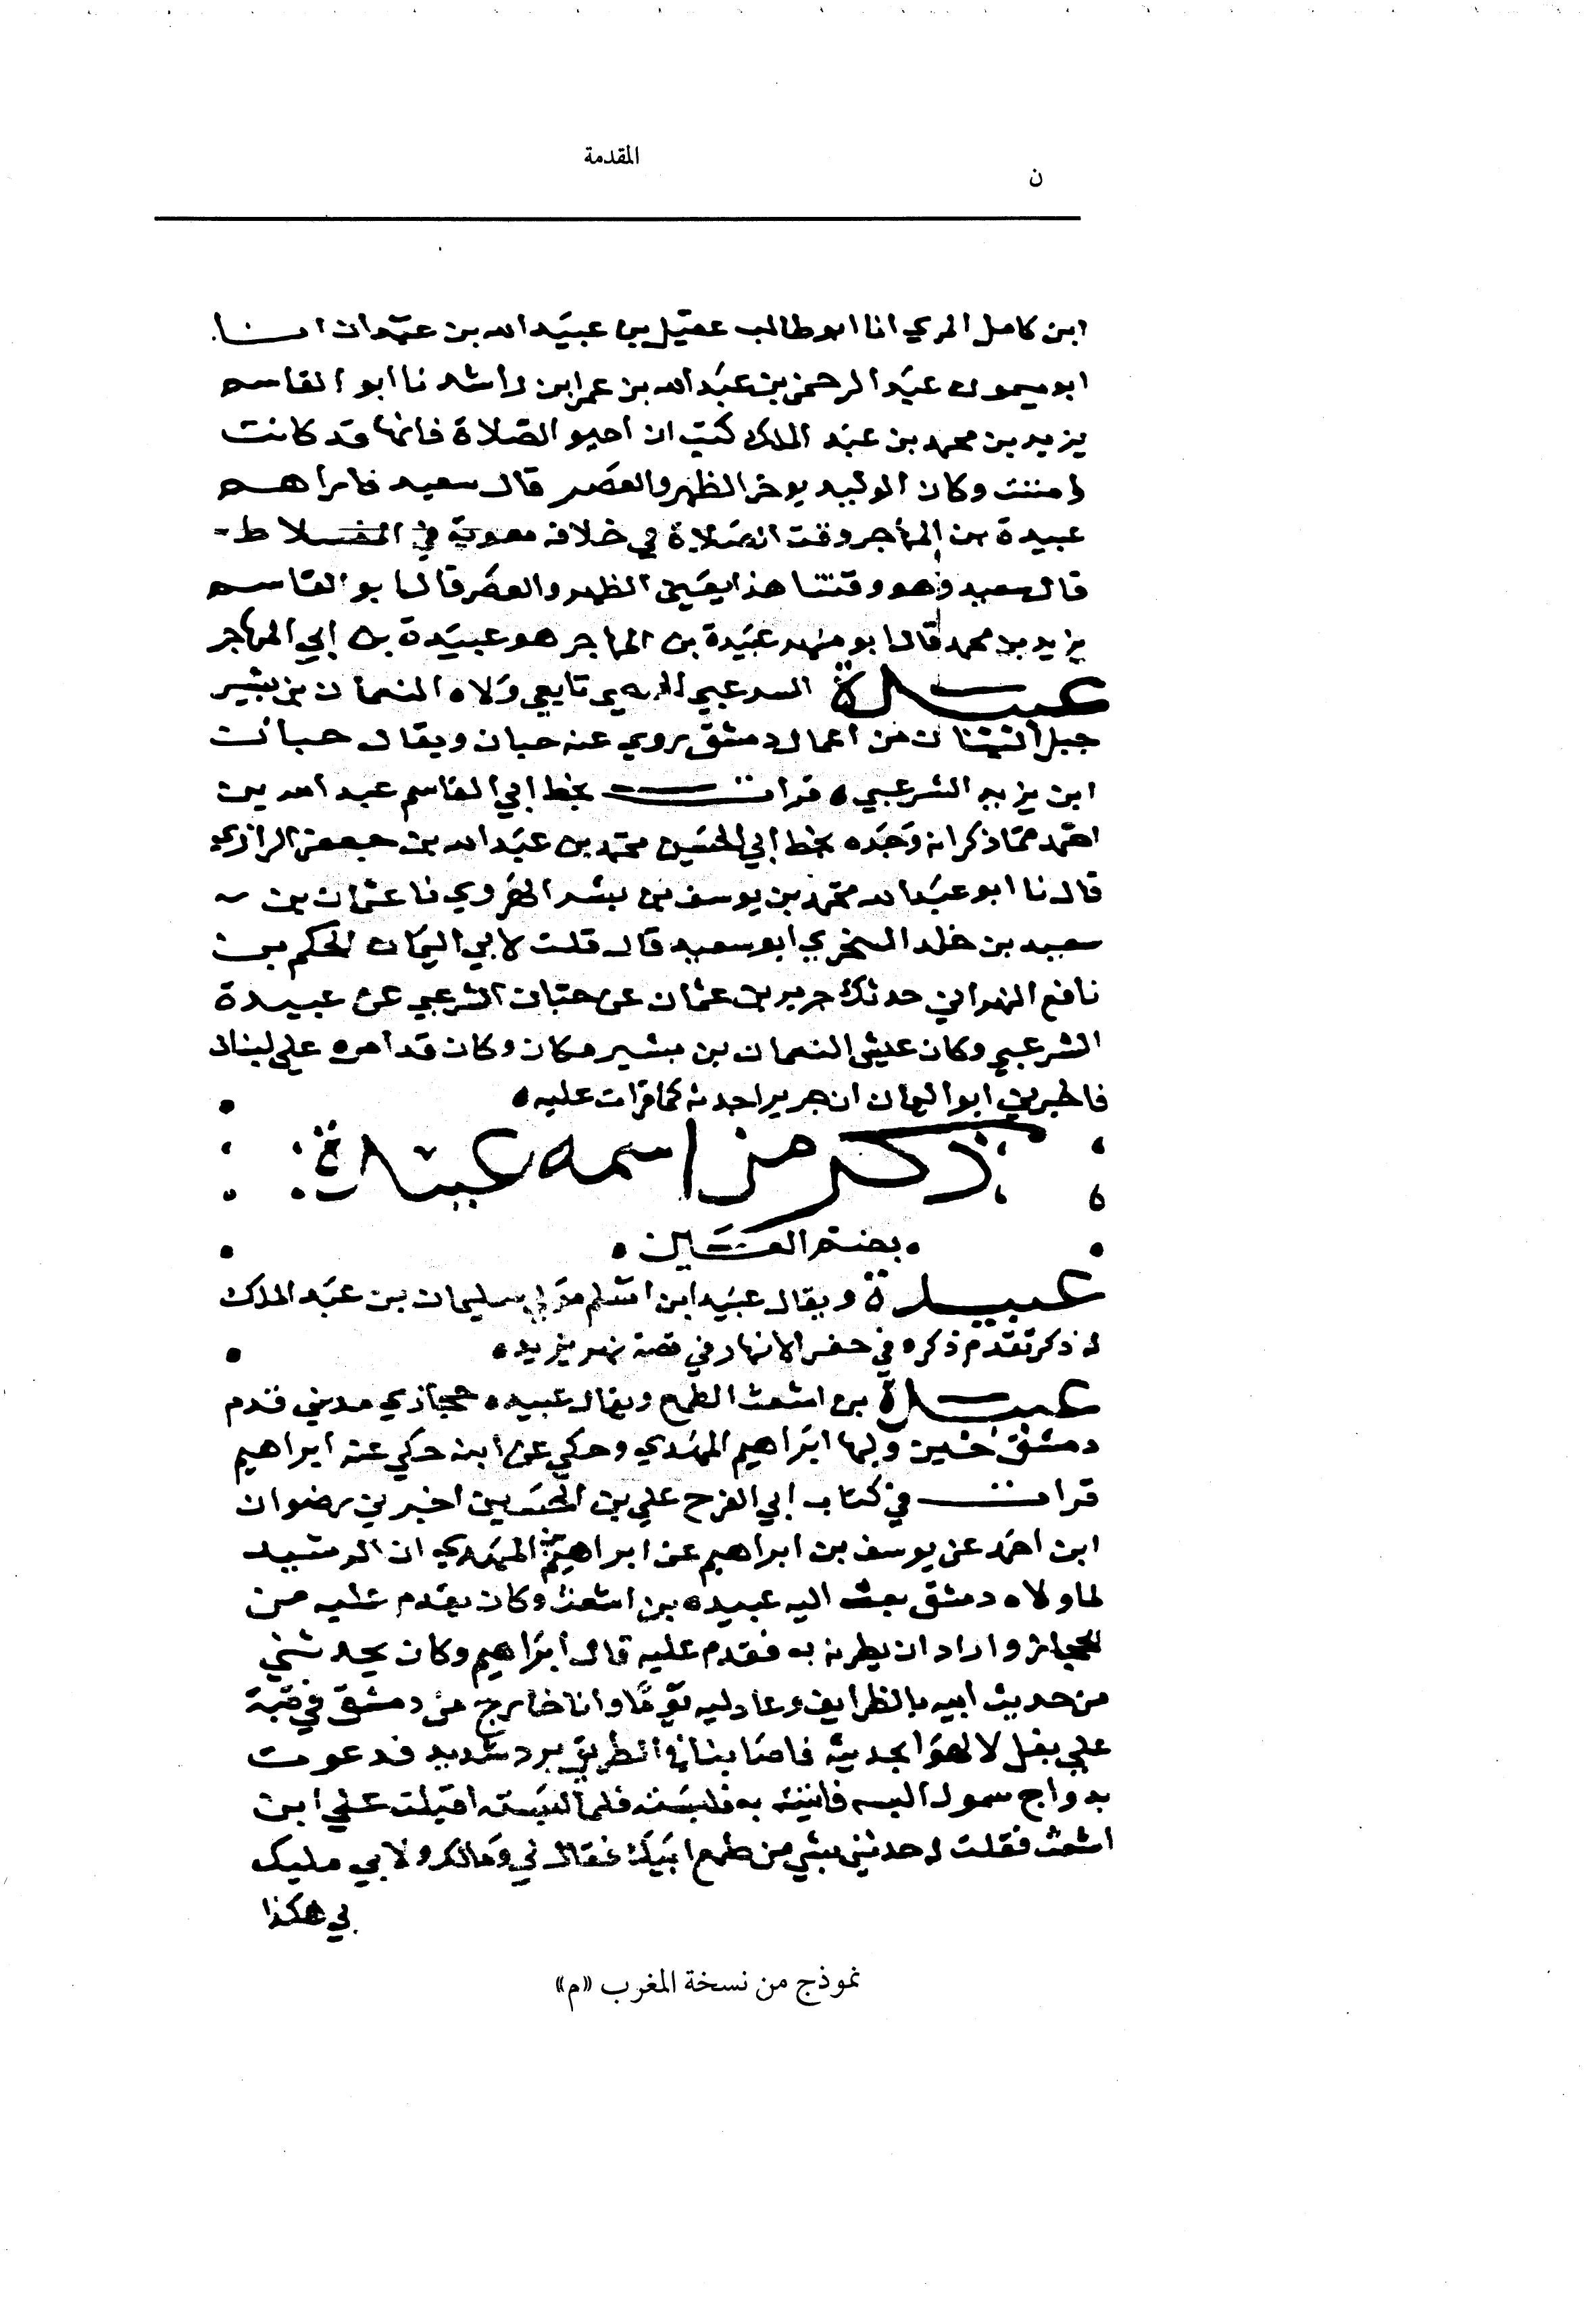 المقدمة
ن
ابن كامل المري انا ابو طالب عقيل بن عبيد الله بن عبدان انا
ابو ميمون عبد الرحمن بن عبد الله بن عمر ابن راشد نا ابو القاسم
يزيد بن محمد بن عبد الملك كتب ان احيو الصلاة فانها قد كانت
امتت وكان الوليد يوخر الظهر والعصر قال سعيد فامراهم
عبيدة بن المهاجر وقت الصلاة في خلافه معوية في
قال سعيد وهو وقتنا هذا يعني الظهر والعصر قال ابو القاسم
يزيد بن محمد قال ابو عبيدة بن المهاجر هو عبيدة بن ابي المهاجر
عبيدة تابعي ولاه النعمان بن بشير
جبل من اعمال دمشق روي عنه حبان ويقال حبان
ابن يزيد الشرعبي ه قرات بخط ابي القاسم عبد الله بن
احمد مما ذكر انه وجده بخط ابي الحسين محمد بن عبد الله بن جعفر الرازي
قال نا ابو عبد الله محمد بن يوسف بن بشر الهروي نا عثمان بن
سعيد بن خلد ابو سعيد قال قلت لابي اليمان الحكم بن
نافع حدثك جرير بن عثمان عن حبان الشرعبي عن عبيدة
الشرعبي وكان النعمان بن بشير مكان وكان قد امره على لبنان
ابو اليمان ان جريرا حدثه كما قرات عليه ه
ذكر من اسمه عبيدة
ه بضم العين ه
عبيدة ويقال عبيد ابن اسلم مولى سليمان بن عبد الملك
له ذكر تقدم ذكره في حفر الانهار في قصة نهر يزيد ه
عبيدة بن اشعث الطمع ويقال عبيده حجازي مديني قدم
دمشق حين وليها ابراهيم المهدي وحكي عن ابيه حكي عنه ابراهيم
قرات في كتاب ابي الفرج علي بن الحسين اخبرني رضوان
ابن احمد عن يوسف بن ابراهيم عن ابراهيم بن المهدي ان الرشيد
لما ولاه دمشق بعث اليه عبيده بن اشعث وكان يقدم عليه من
الحجاز واراد ان يطرفه به فقدم عليه قال ابراهيم وكان يحدثني
من حديث ابيه بالظرايف وعادلته يوما وانا خارج من دمشق في قبة
علي بغل لالهو بحديثه فاصابنا في الطريق برد شديد فدعوت
بدواج سمور البسه فاتيت به فلبسته فلما لبسته اقبلت علي ابن
اشعث فقلت له حدثني بشي من طمع ابيك فقال لي ومالك ولابي عليك
بي هكذا
نموذج من نسخة المغرب «م»